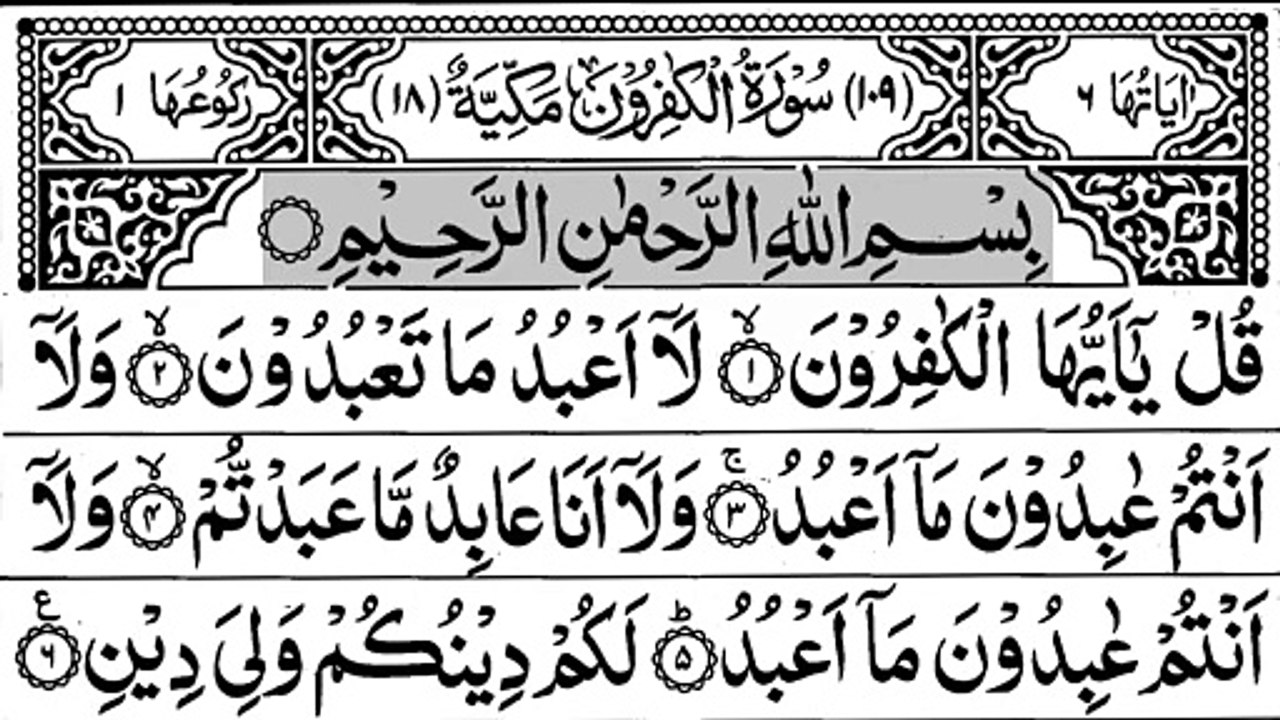 اٰيَاتُهَا ٦ (١٠٩) سُوْرَةُ الْكٰفِرُوْنَ مَكِّيَّةٌ (١٨) رُكُوْعُهَا ١
بِسْمِ اللّٰهِ الرَّحْمٰنِ الرَّحِيْمِ
قُلْ يٰۤاَيُّهَا الْكٰفِرُوْنَ ۙ‏﴿١﴾ لَاۤ اَعْبُدُ مَا تَعْبُدُوْنَ ۙ‏﴿٢﴾ وَلَاۤ
اَنْتُمْ عٰبِدُوْنَ مَاۤ اَعْبُدُ ۚ‏﴿٣﴾ وَلَاۤ اَنَا عَابِدٌ مَّا عَبَدْتُّمْ ۙ‏﴿۴﴾ وَلَاۤ
اَنْتُمْ عٰبِدُوْنَ مَاۤ اَعْبُدُ ؕ‏﴿۵﴾ لَكُمْ دِيْنُكُمْ وَلِىَ دِيْنِ ﴿٦﴾ ع